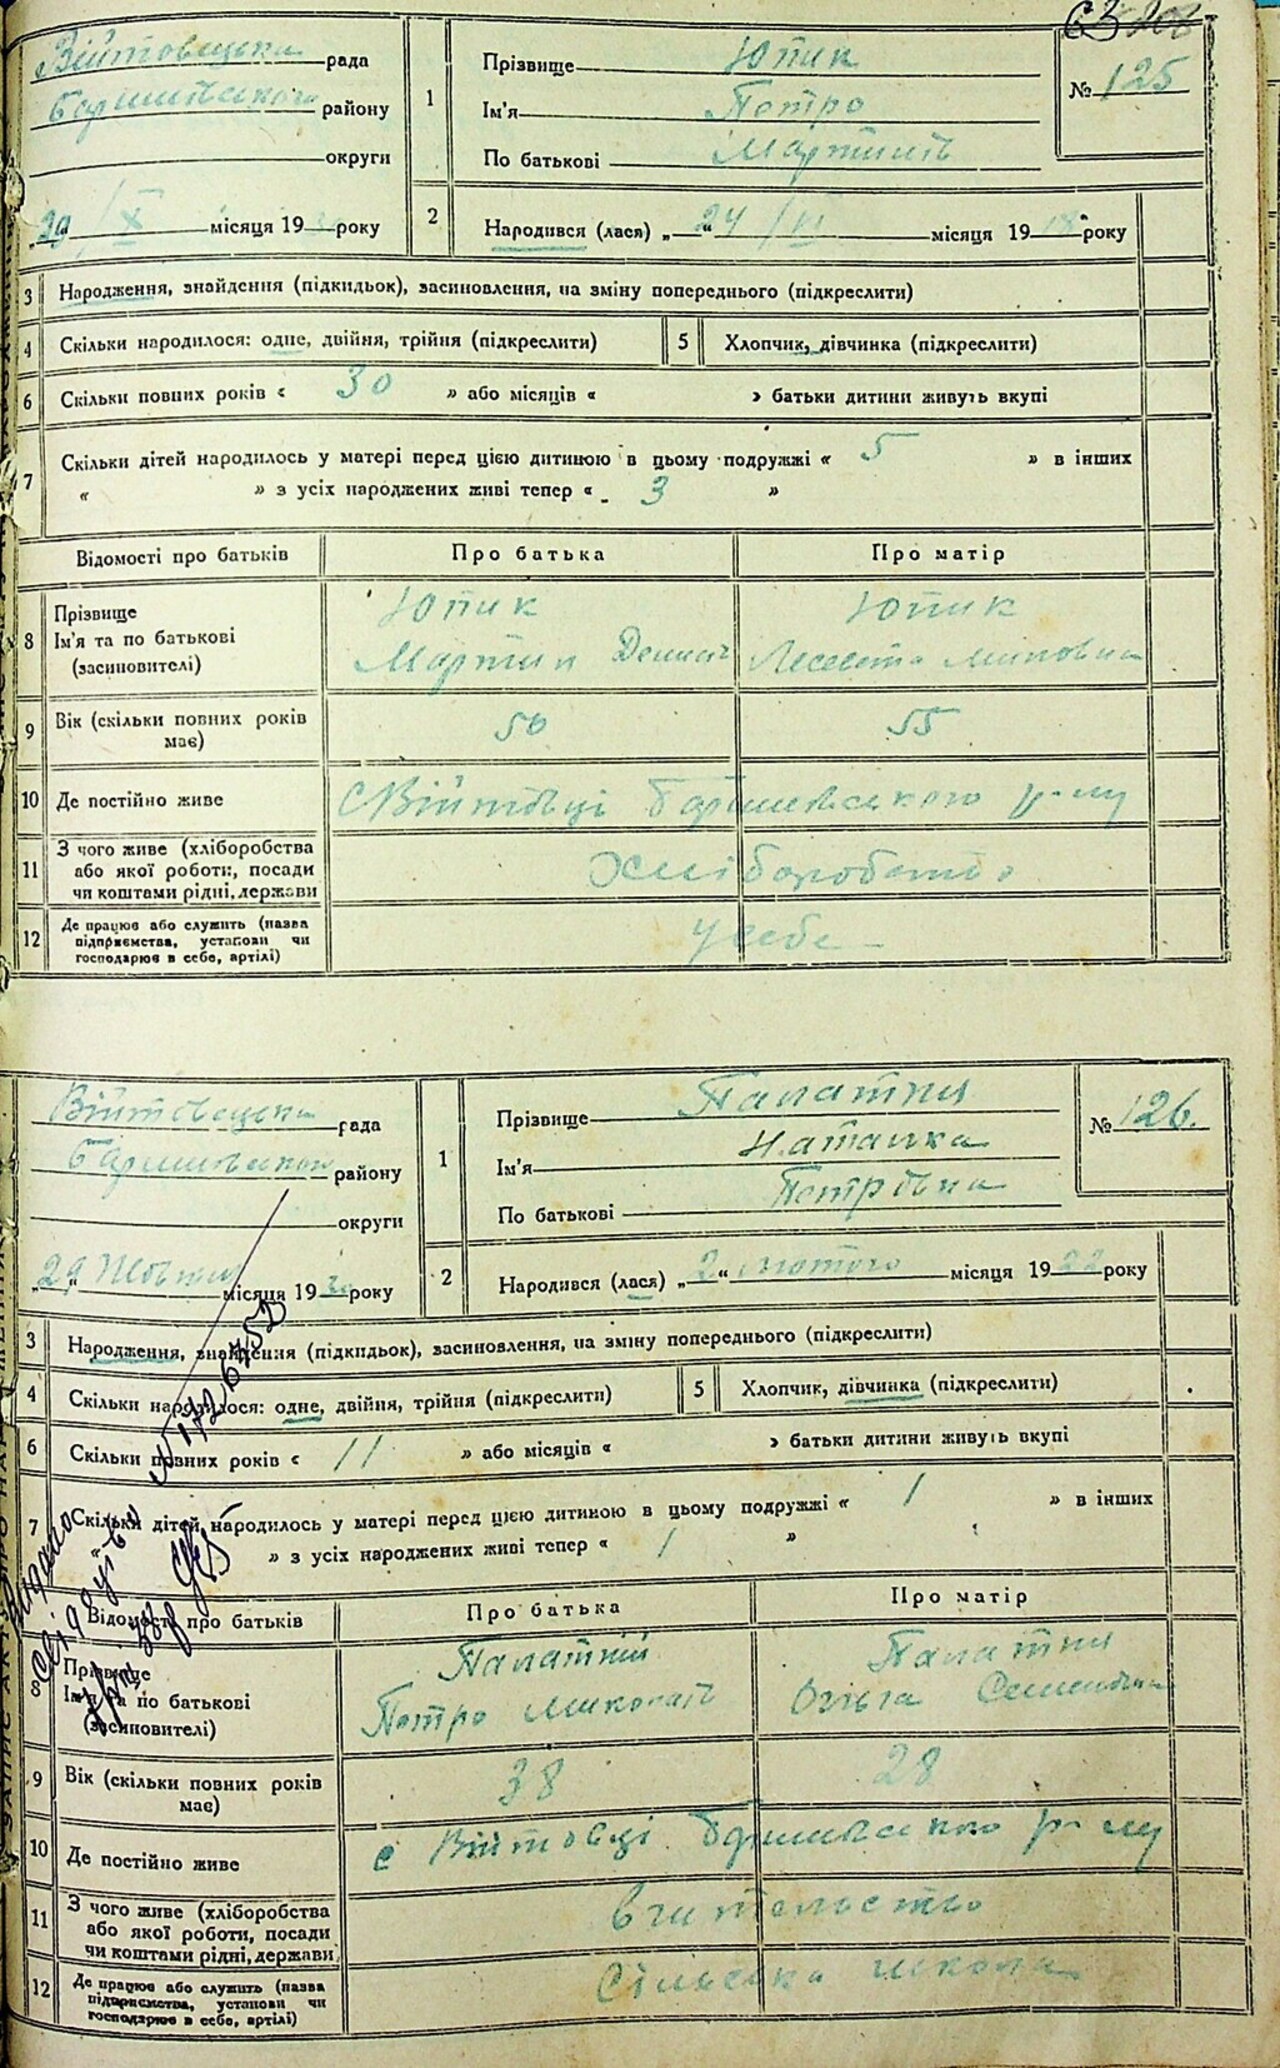 63
Війтовецька рада
Баришівського району
округи
„29" / X місяця 1930 року
1
Прізвище Юпик
Ім'я Петро
По батькові Мартинів
№ 125
2
Народився (лася) „ " 24 / VI місяця 1918 року
3 Народження, знайдення (підкидьок), засиновлення, на зміну попереднього (підкреслити)
4 Скільки народилося: одне, двійня, трійня (підкреслити) 5 Хлопчик, дівчинка (підкреслити)
6 Скільки повних років « 30 » або місяців « » батьки дитини живуть вкупі
7 Скільки дітей народилось у матері перед цією дитиною в цьому подружжі « 5 » в інших
« » з усіх народжених живі тепер « 3 »
Відомості про батьків Про батька Про матір
8 Прізвище Юпик Юпик
Ім'я та по батькові Мартин Денисів
(засиновителі)
9 Вік (скільки повних років має) 56 55
10 Де постійно живе с Війтовці Баришівського р-ну
11 З чого живе (хліборобства
або якої роботи, посади
чи коштами рідні, держави Хліборобство
12 Де працює або служить (назва
підприємства, установи чи
господарює в себе, артілі) у себе
Війтовецька рада
Баришівського району
округи
„29" Жовтня місяця 1930 року
1
Прізвище Палатня
Ім'я Наталка
По батькові Петрівна
№ 126.
2
Народився (лася) „2" лютого місяця 1922 року
3 Народження, знайдення (підкидьок), засиновлення, на зміну попереднього (підкреслити)
4 Скільки народилося: одне, двійня, трійня (підкреслити) 5 Хлопчик, дівчинка (підкреслити)
6 Скільки повних років « 11 » або місяців « » батьки дитини живуть вкупі
7 Скільки дітей народилось у матері перед цією дитиною в цьому подружжі « 1 » в інших
« » з усіх народжених живі тепер « 1 »
Відомості про батьків Про батька Про матір
8 Прізвище Палатній Палатня
Ім'я та по батькові Петро Миколаїв Ольга Семенівна
(засиновителі)
9 Вік (скільки повних років має) 38 28
10 Де постійно живе с Війтовці Баришівського р-ну
11 З чого живе (хліборобства
або якої роботи, посади
чи коштами рідні, держави вчительство
12 Де працює або служить (назва
підприємства, установи чи
господарює в себе, артілі) Сільська школа